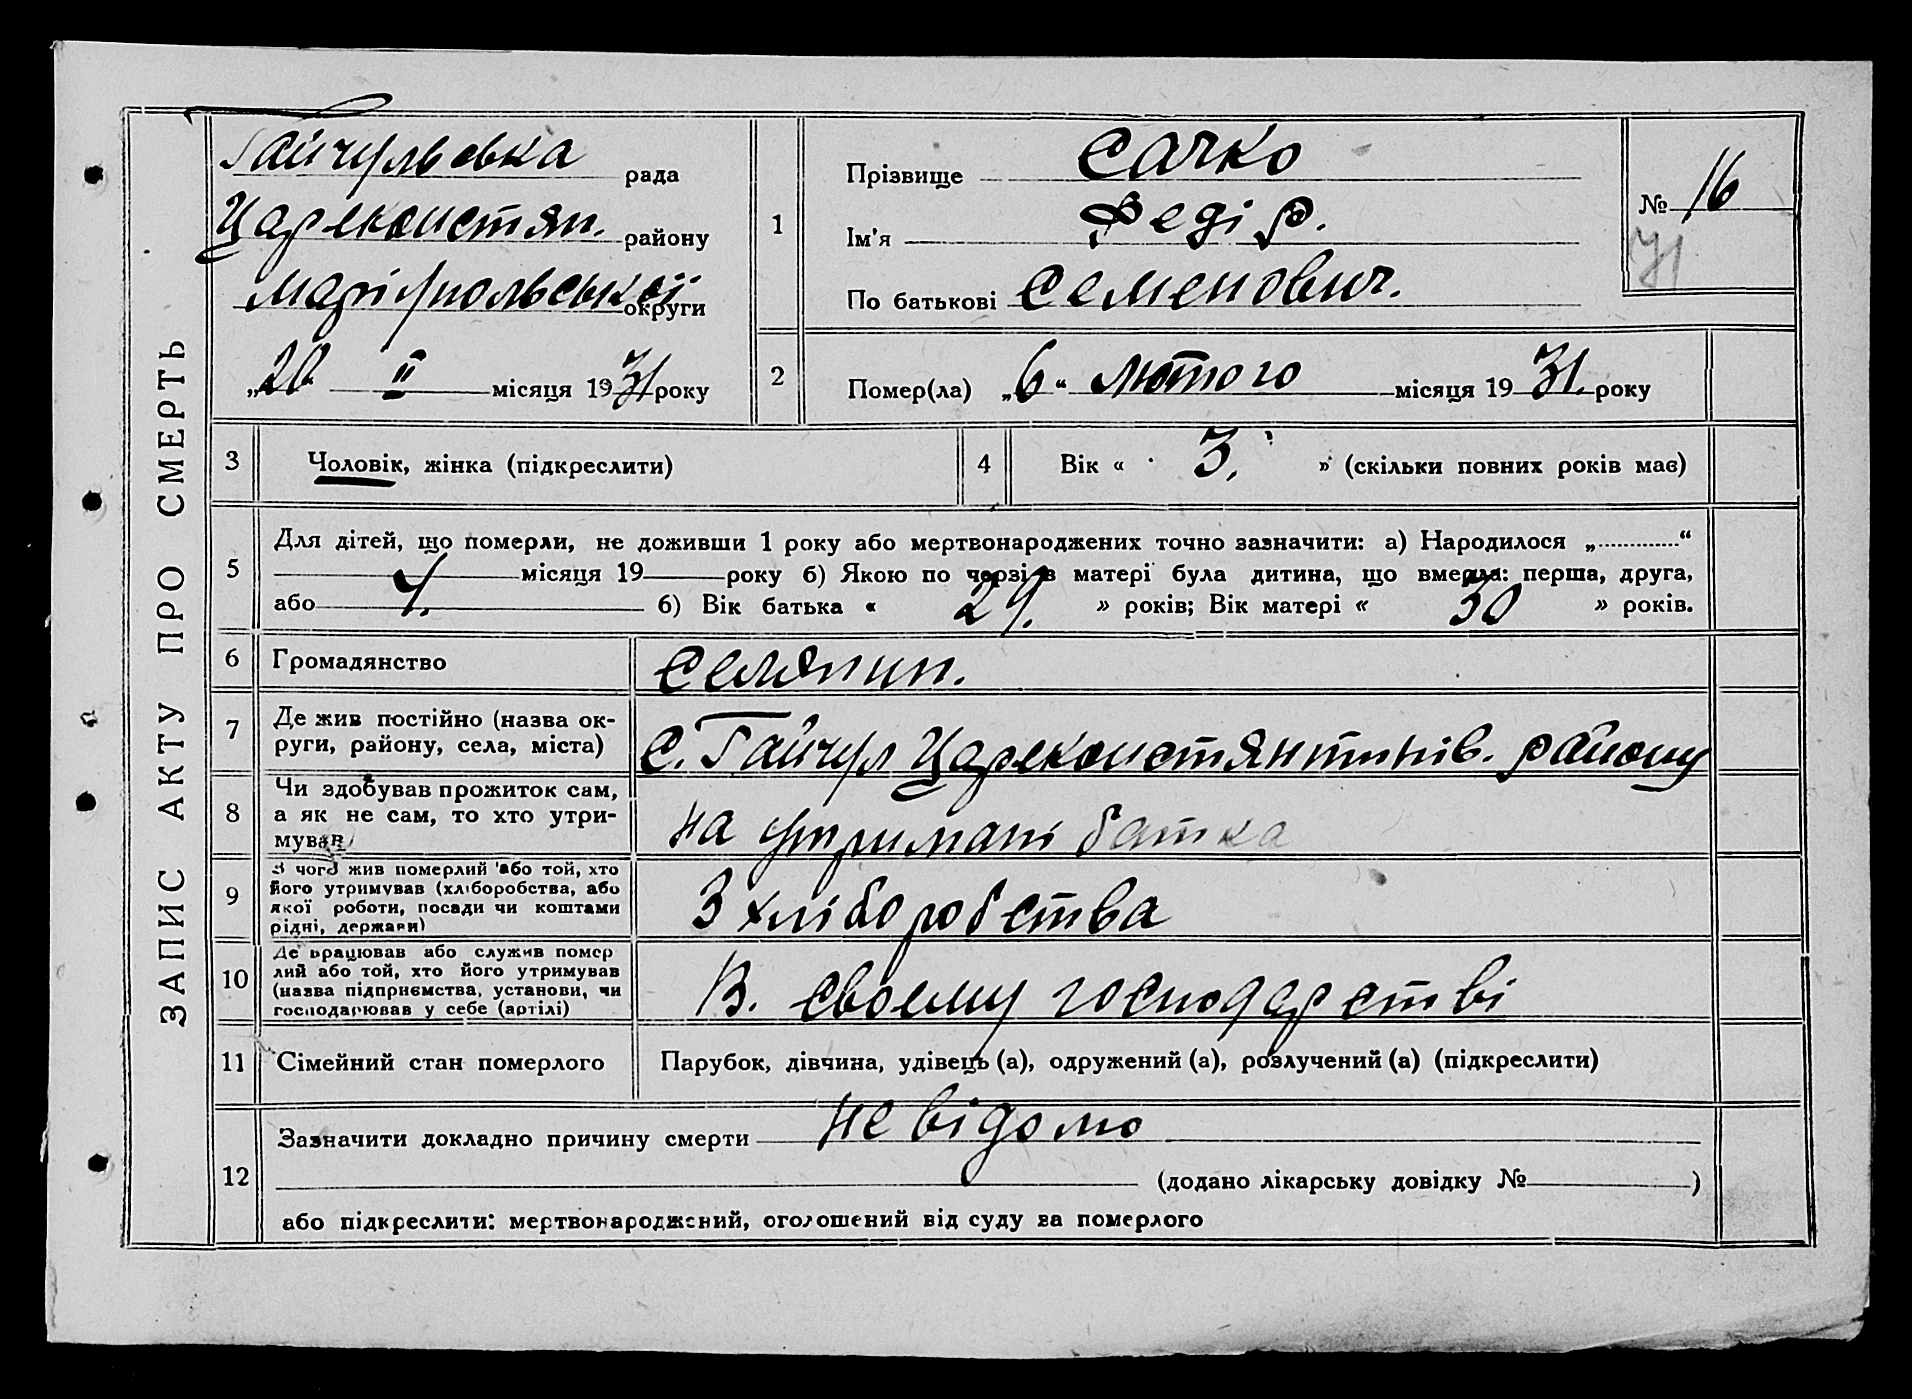 ЗАПИС АКТУ ПРО СМЕРТЬ
Гайчульська рада
Цареконстян. району
Маріупольської округи
„20 II місяця 1931 року
1
Прізвище Сачко
Ім'я Федір.
По батькові Семенович.
№ 16
71
2
Помер(ла) „6“ лютого місяця 1931. року
3
Чоловік, жінка (підкреслити)
4
Вік « 3. » (скільки повних років має)
5
Для дітей, що померли, не доживши 1 року або мертвонароджених точно зазначити: а) Народилося „ “
місяця 19 року б) Якою по черзі в матері була дитина, що вмерла: перша, друга,
або 4. б) Вік батька « 29. » років; Вік матері « 30 » років.
6
Громадянство
селянин.
7
Де жив постійно (назва ок-
руги, району, села, міста)
С. Гайчул Цареконстянтинів. району
8
Чи здобував прожиток сам,
а як не сам, то хто утри-
мував
на утримані батка
9
З чого жив померлий або той, хто
його утримував (хліборобства, або
якої роботи, посади чи коштами
рідні, держави)
З хліборобства
10
Де працював або служив помер
лий або той, хто його утримував
(назва підприємства, установи, чи
господарював у себе (артілі)
В. своему господарстві
11
Сімейний стан померлого
Парубок, дівчина, удівець (а), одружений (а), розлучений (а) (підкреслити)
12
Зазначити докладно причину смерти не відомо
(додано лікарську довідку № )
або підкреслити: мертвонароджений, оголошений від суду за померлого